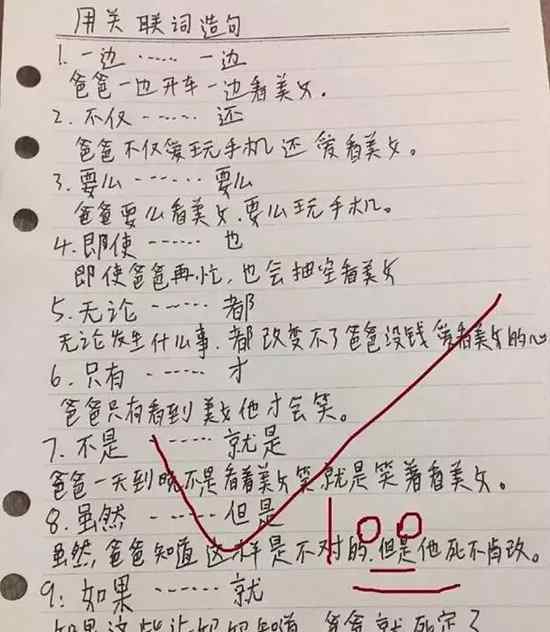 用关联词造句
1. 一边 ...... 一边
爸爸一边开车一边看美女.
2. 不仅 ...... 还
爸爸不仅爱玩手机还爱看美女。
3. 要么 ...... 要么
爸爸要么看美女.要么玩手机。
4. 即使 ...... 也
即使爸爸再忙,也会抽空看美女
5. 无论 ...... 都
无论发生什么事.都改变不了爸爸没钱爱看美女的心
6. 只有 ...... 才
爸爸只有看到美女他才会笑。
7. 不是 ...... 就是
爸爸一天到晚不是看着美女笑就是笑着看美女。
8. 虽然 ...... 但是
虽然,爸爸知道这样是不对的.但是他死不肯改。
100
9: 如果 ...... 就
如果这些让妈妈知道 爸爸就死定了